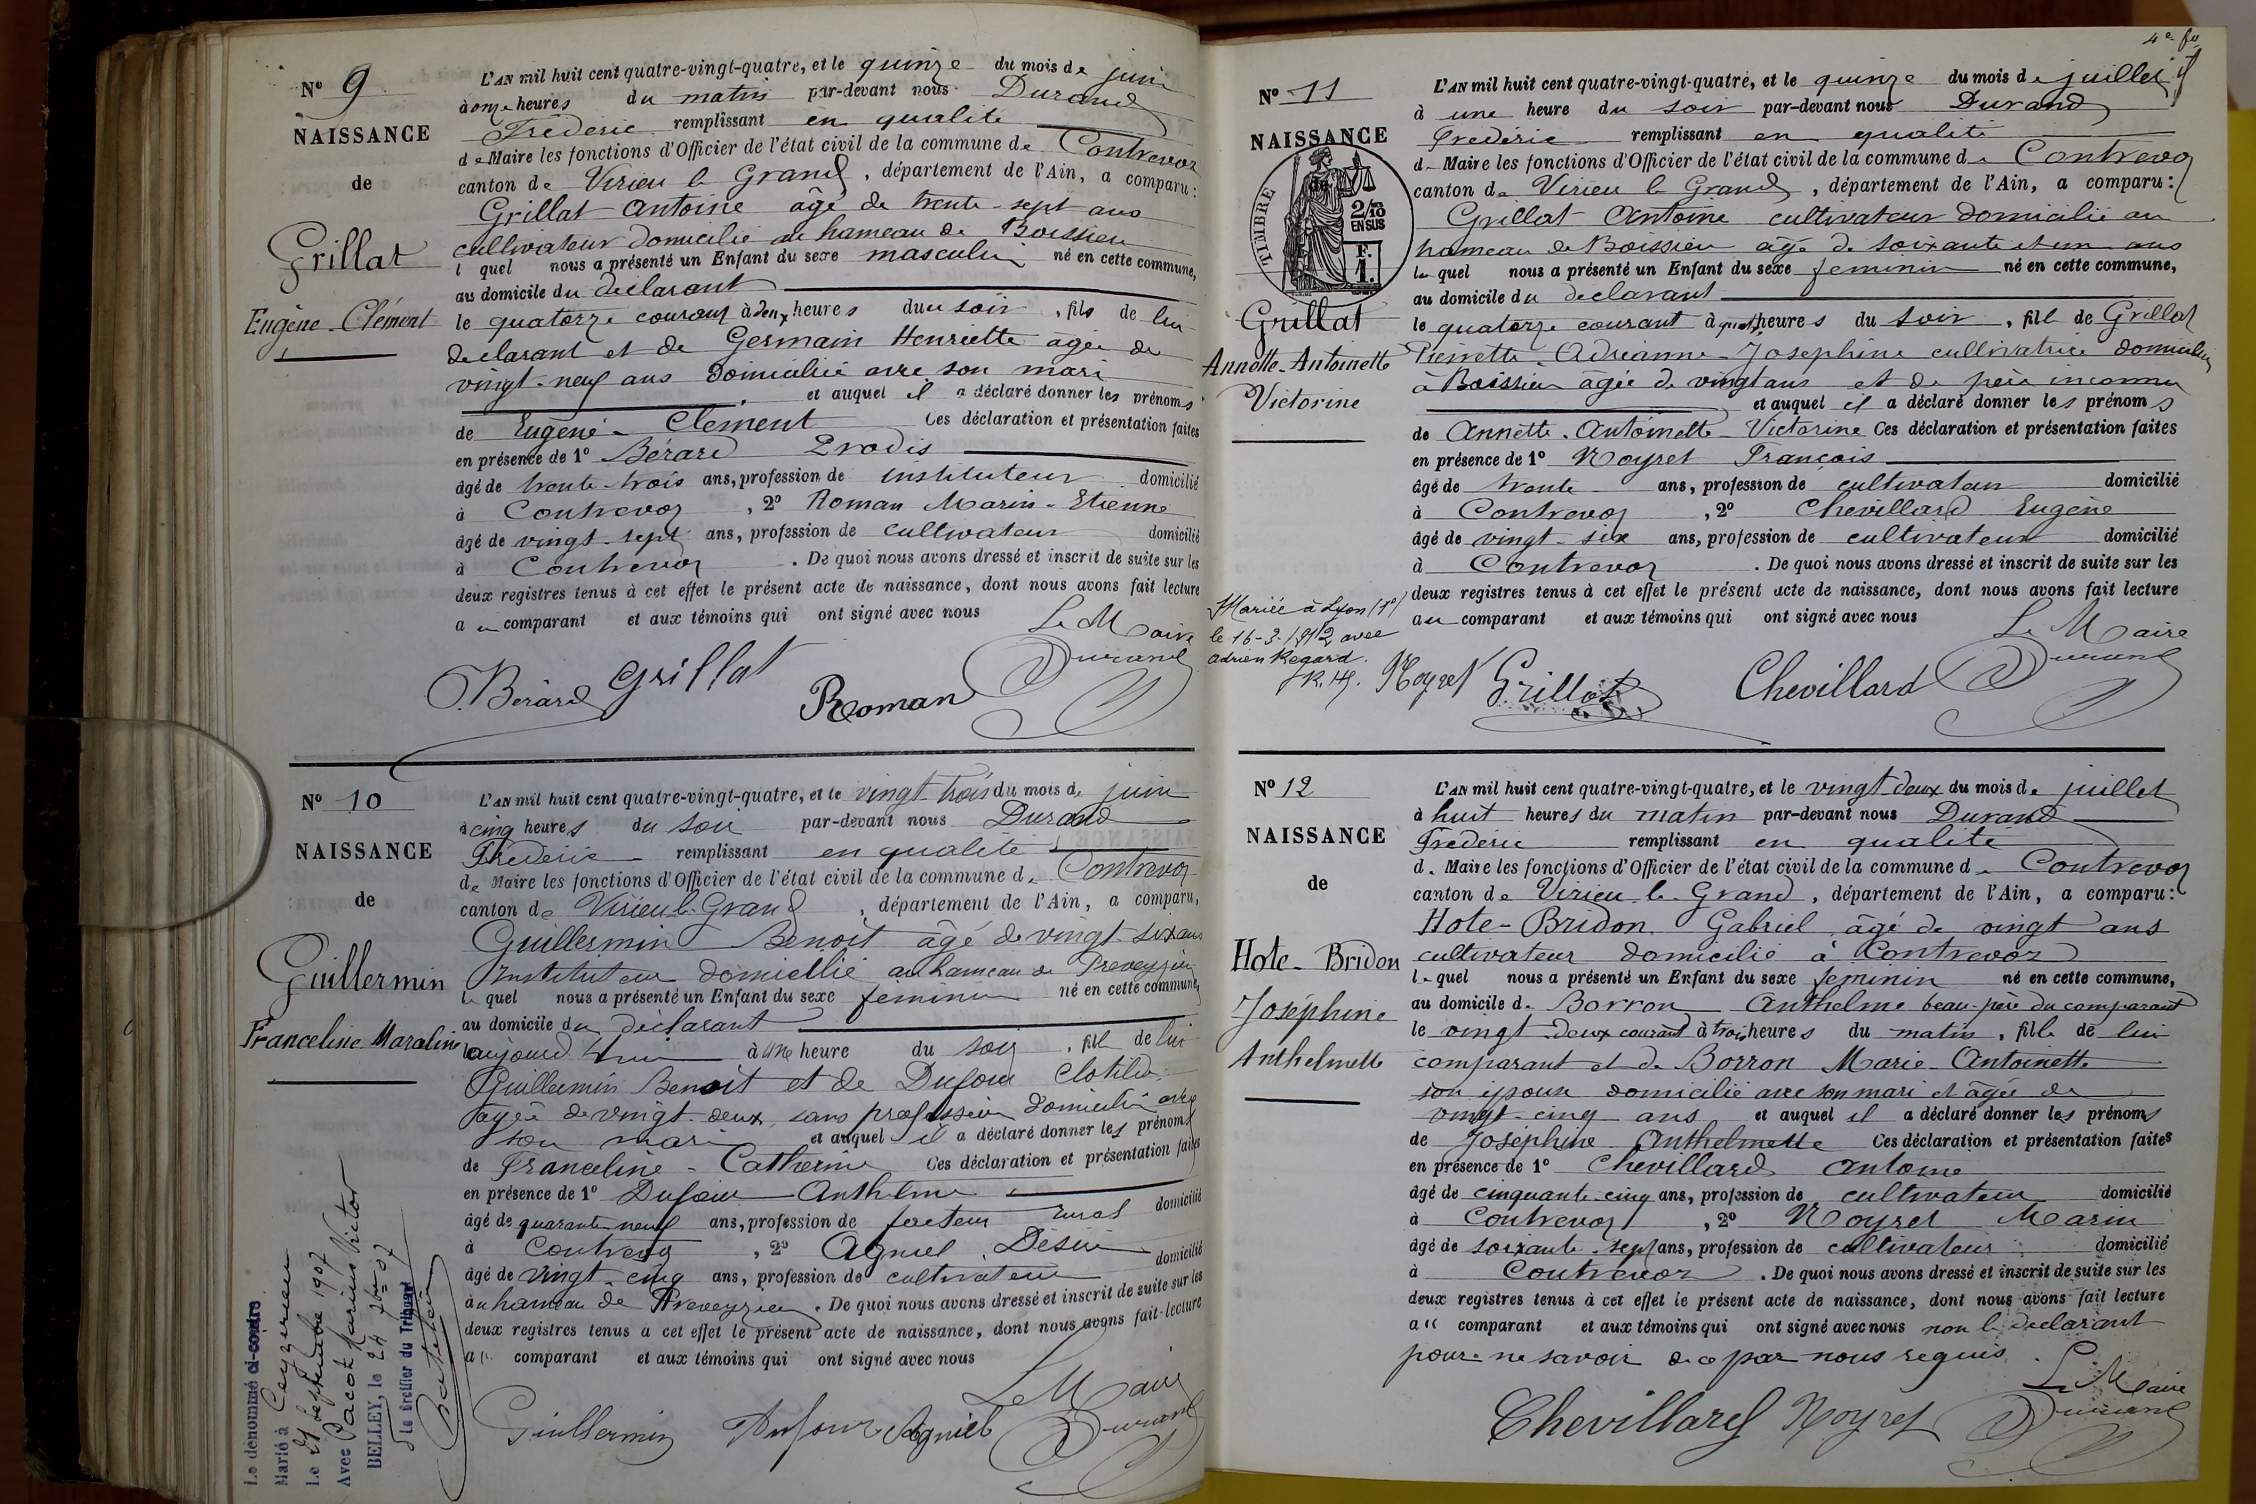 Nº 9
NAISSANCE
de
Grillat
Eugène-Clément
L'AN mil huit cent quatre-vingt-quatre, et le quinze du mois de juin
à onze heures du matin par-devant nous Durand
Frédéric remplissant en qualité
de Maire les fonctions d'Officier de l'état civil de la commune de Contrevoz
canton de Virieu le Grand, département de l'Ain, a comparu:
Grillat Antoine âgé de trente-sept ans
cultivateur domicilié au hameau de Boissieu
l quel nous a présenté un Enfant du sexe masculin né en cette commune,
au domicile du déclarant
le quatorze courant à deux heures du soir, fils de lui
déclarant et de Germain Henriette agée de
vingt-neuf ans domiciliée avec son mari
et auquel il a déclaré donner les prénoms
de Eugène-Clément Ces déclaration et présentation faites
en présence de 1º Bérard
âgé de trente-trois ans, profession de instituteur domicilié
à Contrevoz, 2º Roman Marin-Etienne
âgé de vingt-sept ans, profession de cultivateur domicilié
à Contrevoz. De quoi nous avons dressé et inscrit de suite sur les
deux registres tenus à cet effet le présent acte de naissance, dont nous avons fait lecture
au comparant et aux témoins qui ont signé avec nous
Le Maire
Bérard Grillat Roman Durand
Nº 10
NAISSANCE
de
Guillermin
Franceline-Maraline
L'AN mil huit cent quatre-vingt-quatre, et le vingt trois du mois de juin
à cinq heures du soir par-devant nous Durand
Frédéric remplissant en qualité
de Maire les fonctions d'Officier de l'état civil de la commune de Contrevoz
canton de Virieu-le-Grand, département de l'Ain, a comparu,
Guillermin Benoit âgé de vingt-six ans
Instituteur domicilié au hameau de Preveyzieu
le quel nous a présenté un Enfant du sexe féminin né en cette commune,
au domicile du déclarant
aujourd'hui à une heure du soir, fille de lui
Guillermin Benoit et de Dufour Clotilde
âgée de vingt-deux, sans profession domiciliée avec
son mari et auquel il a déclaré donner les prénoms
de Franceline-Catherine Ces déclaration et présentation faites
en présence de 1º Dufour Anthelme
âgé de quarante neuf ans, profession de facteur rural domicilié
à Contrevoz, 2º Agniel Désiré
âgé de vingt-cinq ans, profession de cultivateur domicilié
au hameau de Preveyzieu. De quoi nous avons dressé et inscrit de suite sur les
deux registres tenus à cet effet le présent acte de naissance, dont nous avons fait lecture
au comparant et aux témoins qui ont signé avec nous
Le Maire
Guillermin Dufour Agniel Durand
Le dénommé ci-contre
Marié à Ceyzerieu
Le 21 Septembre 1907
Avec Pacot Marius Victor
BELLEY, le 24 7bre 07
Le Greffier du Tribunal
4e fe
Nº 11
NAISSANCE
de
TIMBRE
2/10
EN SUS
F.
1.
Grillat
Annette-Antoinette
Victorine
L'AN mil huit cent quatre-vingt-quatre, et le quinze du mois de juillet
à une heure du soir par-devant nous Durand
Frédéric remplissant en qualité
de Maire les fonctions d'Officier de l'état civil de la commune de Contrevoz
canton de Virieu le Grand, département de l'Ain, a comparu:
Grillat Antoine cultivateur domicilié au
hameau de Boissieu âgé de soixante et un ans
le quel nous a présenté un Enfant du sexe féminin né en cette commune,
au domicile du déclarant
le quatorze courant à quatre heures du soir, fille de Grillat
Pierrette-Adrianne-Josephine cultivatrice domiciliée
à Boissieu âgée de vingt ans et de père inconnu
et auquel il a déclaré donner les prénoms
de Annette-Antoinette-Victorine Ces déclaration et présentation faites
en présence de 1º Noyret François
âgé de trente ans, profession de cultivateur domicilié
à Contrevoz, 2º Chevillard Eugène
âgé de vingt-six ans, profession de cultivateur domicilié
à Contrevoz. De quoi nous avons dressé et inscrit de suite sur les
deux registres tenus à cet effet le présent acte de naissance, dont nous avons fait lecture
au comparant et aux témoins qui ont signé avec nous
Le Maire
Noyret Grillat Chevillard Durand
Mariée à Lyon (1e)
le 16-3-1912 avec
Adrien Regard.
Nº 12
NAISSANCE
de
Hote-Bridon
Joséphine
Anthelmette
L'AN mil huit cent quatre-vingt-quatre, et le vingt deux du mois de juillet
à huit heures du matin par-devant nous Durand
Frédéric remplissant en qualité
de Maire les fonctions d'Officier de l'état civil de la commune de Contrevoz
canton de Virieu-le-Grand, département de l'Ain, a comparu:
Hote-Bridon Gabriel âgé de vingt ans
cultivateur domicilié à Contrevoz
le quel nous a présenté un Enfant du sexe féminin né en cette commune,
au domicile de Borron Anthelme beau-père du comparant
le vingt-deux courant à trois heures du matin, fille de lui
comparant et de Borron Marie-Antoinette
son épouse domicilié avec son mari et âgée de
vingt-cinq ans et auquel il a déclaré donner les prénoms
de Joséphine Anthelmette Ces déclaration et présentation faites
en présence de 1º Chevillard Antoine
âgé de cinquante-cinq ans, profession de cultivateur domicilié
à Contrevoz, 2º Noyret Marin
âgé de soixante-sept ans, profession de cultivateur domicilié
à Contrevoz. De quoi nous avons dressé et inscrit de suite sur les
deux registres tenus à cet effet le présent acte de naissance, dont nous avons fait lecture
au comparant et aux témoins qui ont signé avec nous non le déclarant
pour ne savoir de ce par nous requis.
Le Maire
Chevillard Noyret Durand